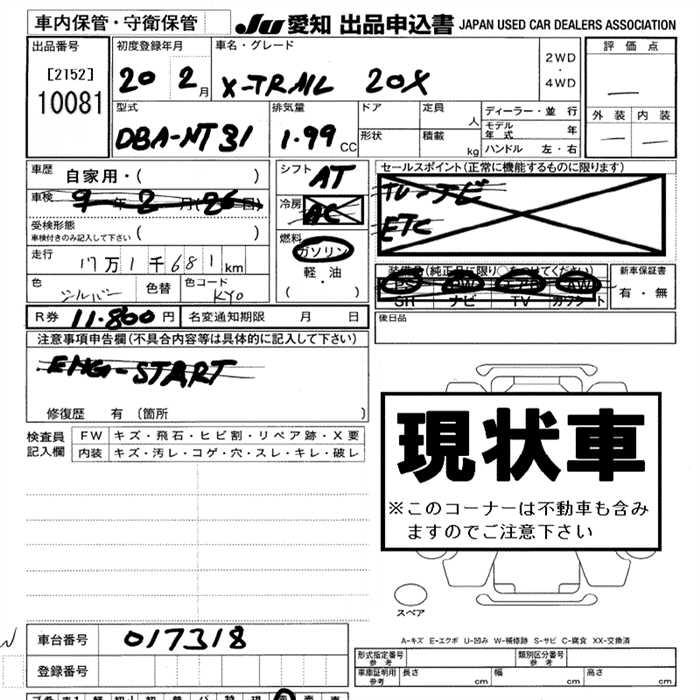 車内保管・守衛保管 JU 愛知 出品申込書 JAPAN USED CAR DEALERS ASSOCIATION
出品番号 初度登録年月 車名・グレード 2WD・4WD 評価点
[2152] 20 2月 X-TRAIL 20X
10081 型式 排気量 ドア 定員 人 ディーラー・並行 外装 内装
DBA-NT31 1.99CC 形状 積載 kg モデル年式 年
ハンドル 左・右
車歴 自家用・( ) シフト AT セールスポイント(正常に機能するものに限ります)
車検 9年2月(26日) 冷房 AC TV ナビ
受検形態 ETC
車検付きのみ記入して下さい ( ) 燃料
走行 17万1千681km ガソリン
軽・油
( ・ )
装備品(純正品に限り○をつけてください) 新車保証書
PS PW エアB AW
SR ナビ TV カワシート 有・無
色 シルバー 色替 色コード KY0
R券 11.800円 名変通知期限 月 日 後日品
注意事項申告欄(不具合内容等は具体的に記入して下さい)
ENG-START
修復歴 有 (箇所 )
検査員 FW キズ・飛石・ヒビ割・リペア跡・X要
記入欄 内装 キズ・汚レ・コゲ・穴・スレ・キレ・破レ
現状車
※このコーナーは不動車も含み
ますのでご注意下さい
スペア
A-キズ E-エクボ U-凹み W-補修跡 S-サビ C-腐食 XX-交換済
車台番号 017318 形式指定番号 参考 類別区分番号 参考
登録番号 車庫証明用 参考 長さ cm 幅 cm 高さ cm